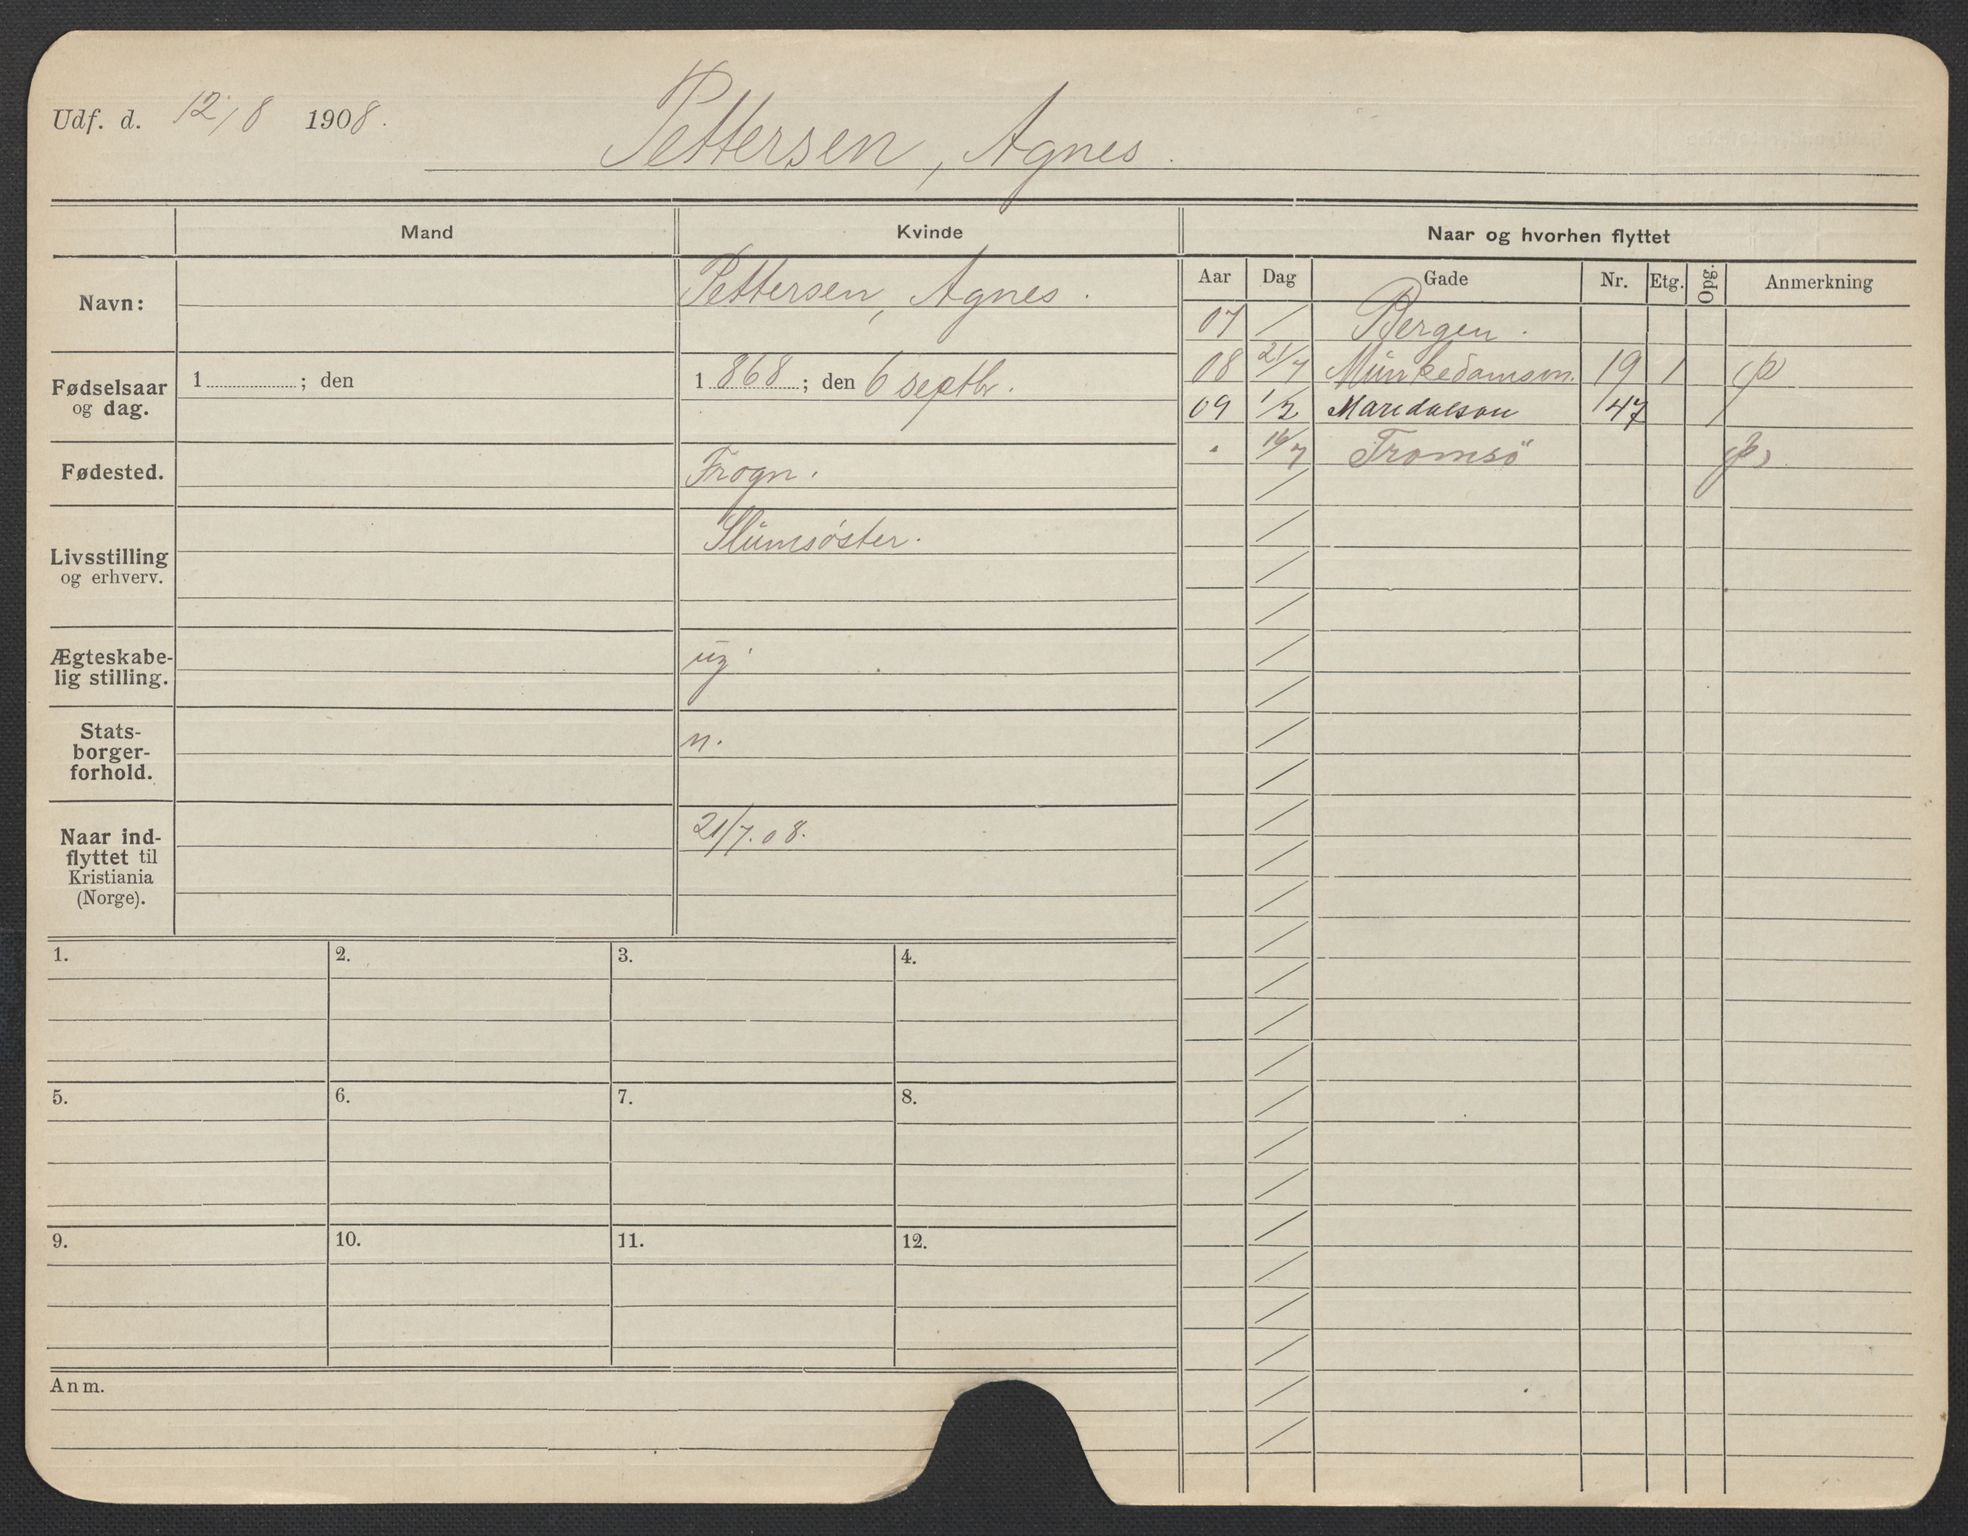 Udf. d. 12/8 1908.
Pettersen, Agnes.
Mand Kvinde Naar og hvorhen flyttet
Aar Dag Gade Nr. Etg. Opg. Anmerkning
Navn: Pettersen, Agnes.
07 / Bergen.
Fødselsaar
og dag.
1 ; den
1868; den 6 septbr.
08 21/7 Munkedamsvn. 19 1 (p)
09 1/2 Maridalsvn 147 /
" 16/7 Tromsö (p)
Fødested. Frogn.
Livsstilling
og erhverv.
Slumsøster.
Ægteskabe-
lig stilling.
ug.
Stats-
borger-
forhold.
n.
Naar ind-
flyttet til
Kristiania
(Norge).
21/7.08.
1. 2. 3. 4.
5. 6. 7. 8.
9. 10. 11. 12.
Anm.